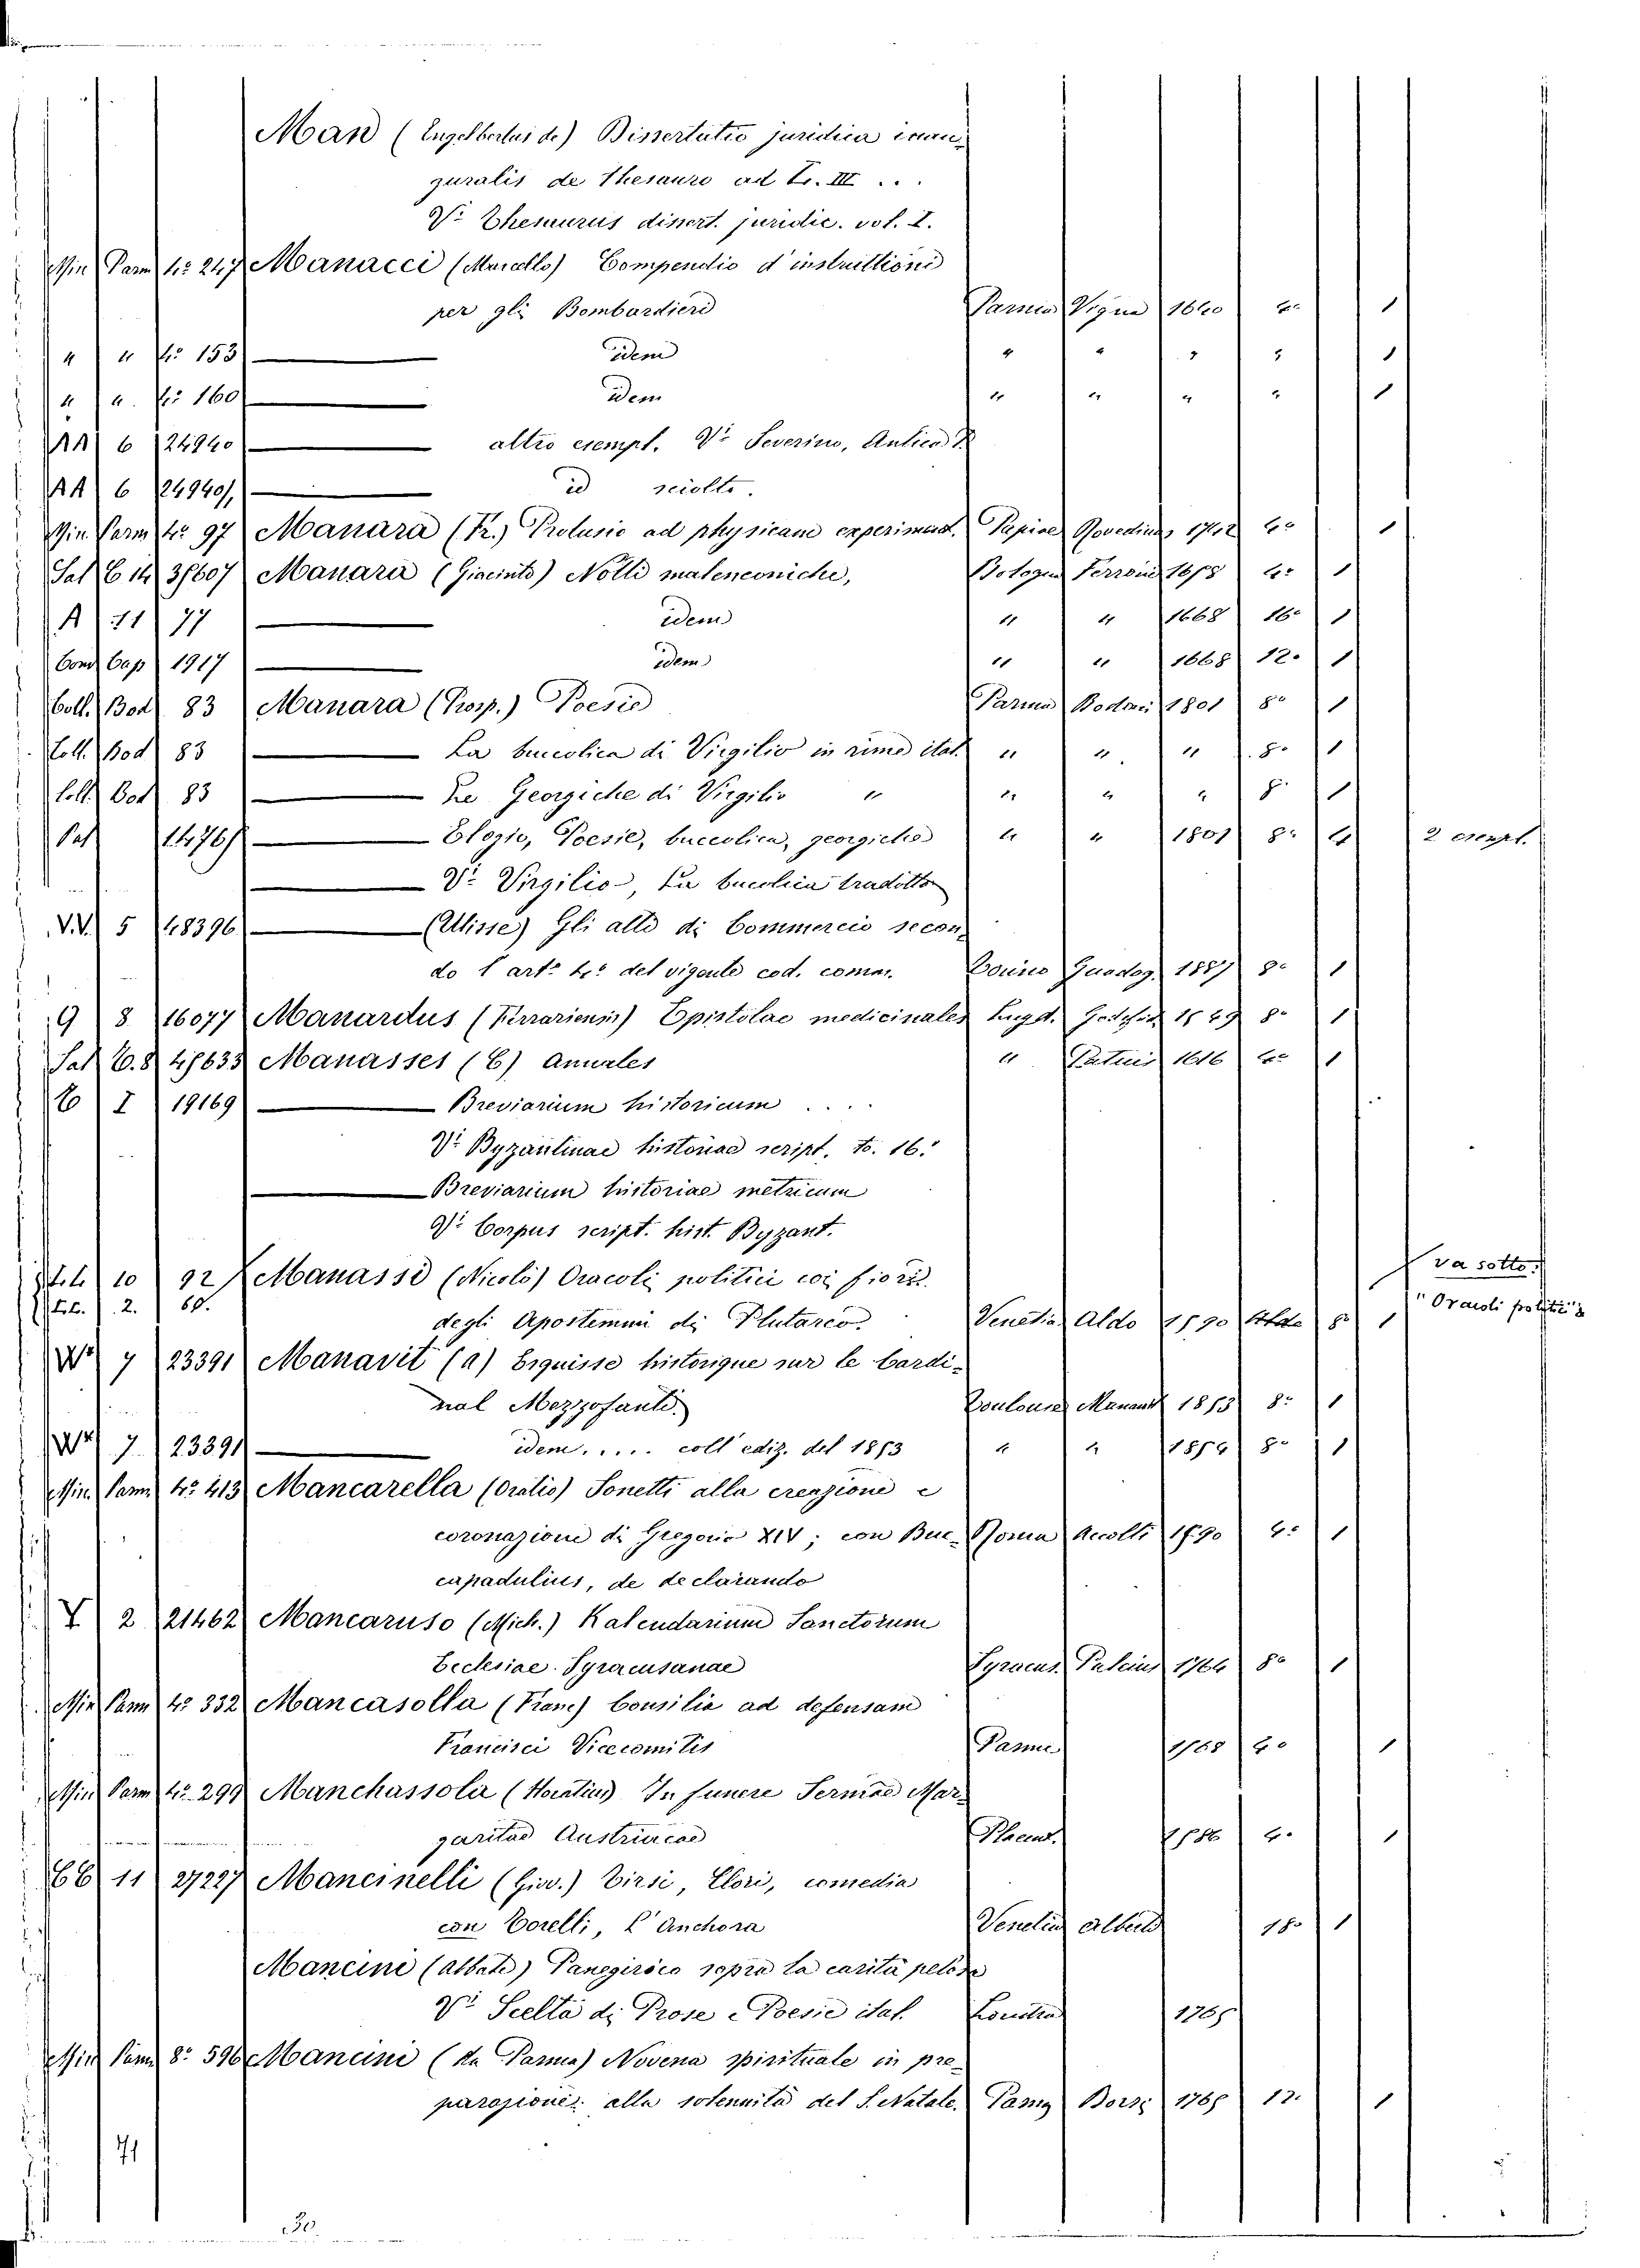 Man (Engelbertus de) Dissertatio juridica inau-
guralis de Thesauro ad Tr. III ...
V. Thesaurus dissert. juridic. vol. I.
Min Parm 4º 247 Manacci (Marcello) Compendio d'instruttioni
per gli Bombardieri Parma Vigna 1640 4º 1
" " 4º 153 idem " " " " 1
" " 4º 160 idem " " " " 1
AA 6 24940 altro esempl. Vº Severino, Antica
AA 6 24940/1 id sciolto.
Min Parm 4º 97 Manara (Fr.) Prolusio ad physicam experiment. Papiae 4º 1
Sal C 14 37607 Manara (Giacinto) Notti malenconiche, Bologna Ferroni 1658 4º 1
A 11 77 idem " " 1668 16º 1
Cond Cap 1917 idem " " 1668 12º 1
Coll. Bod 83 Manara (Prosp.) Poesie Parma Bodoni 1801 8º 1
Coll. Bod 83 La buccolica di Virgilio in rime ital. " " " 8º 1
Coll. Bod 83 Le Georgiche di Virgilio " " " " 8º 1
Pal 14761 Elogio, Poesie, buccolica, georgiche " " 1801 8º 2 esempl.
Vº Virgilio, La bucolica tradotta
V.V. 5 48396 (Ulisse) Gli atti di Commercio secon-
do l'artº 4º del vigente cod. comm. Torino Guadag. 1887 8º 1
9 8 16077 Manardus (Ferrariensis) Epistolae medicinales Lugd. 1549 8º 1
Sal C. 8 47633 Manasses (C) Annales " 1616 4º 1
C I 19169 Breviarium historicum ....
Vº Byzantinae historiae script. to. 16º
Breviarium historiae metricum
Vº Corpus script. hist. Byzant.
10 92 Manassi (Nicolò) Oracoli politici coi fiori va sotto
2. 60. degli Apostemmi di Plutarco. Venetia Aldo 1590 8º 1 "Oracoli politici"
W² 7 23391 Manavit (A) Esquisse historique sur le Cardi-
nal Mezzofanti. Toulouse Manavit 1853 8º 1
W² 7 23391 idem ..... coll'ediz. del 1853 " " 1854 8º 1
Min Parm 4º 413 Mancarella (Oratio) Sonetti alla creazione e
coronazione di Gregorio XIV; con Buc- Roma Accolti 1590 4º 1
capadulius, de declarando
Y 2 21462 Mancaruso (Mich.) Kalendarium Sanctorum
Ecclesiae Syracusanae Syracus. Puleius 1764 8º 1
Min Parm 4º 332 Mancasolla (Franc) Consilia ad defensam
Francisci Vicecomitis Parmae 4º 1
Min Parm 4º 299 Manchassola (Horatius) In funere Sermae Mar-
garitae Austriacae Placent. 1586 4º 1
CC 11 27227 Mancinelli (Giov.) Tirsi, Clori, comedia
con Corelli, L'Anchora Venetia Alberti 18º 1
Mancini (Abbate) Panegirico sopra la carità pelosa
Vº Scelta di Prose e Poesie ital. Londra 1765
Min Parm 8º 596 Mancini (da Parma) Novena spirituale in pre-
parazione alla solennità del S. Natale. Parma Borsi 1765 12º 1
71
30